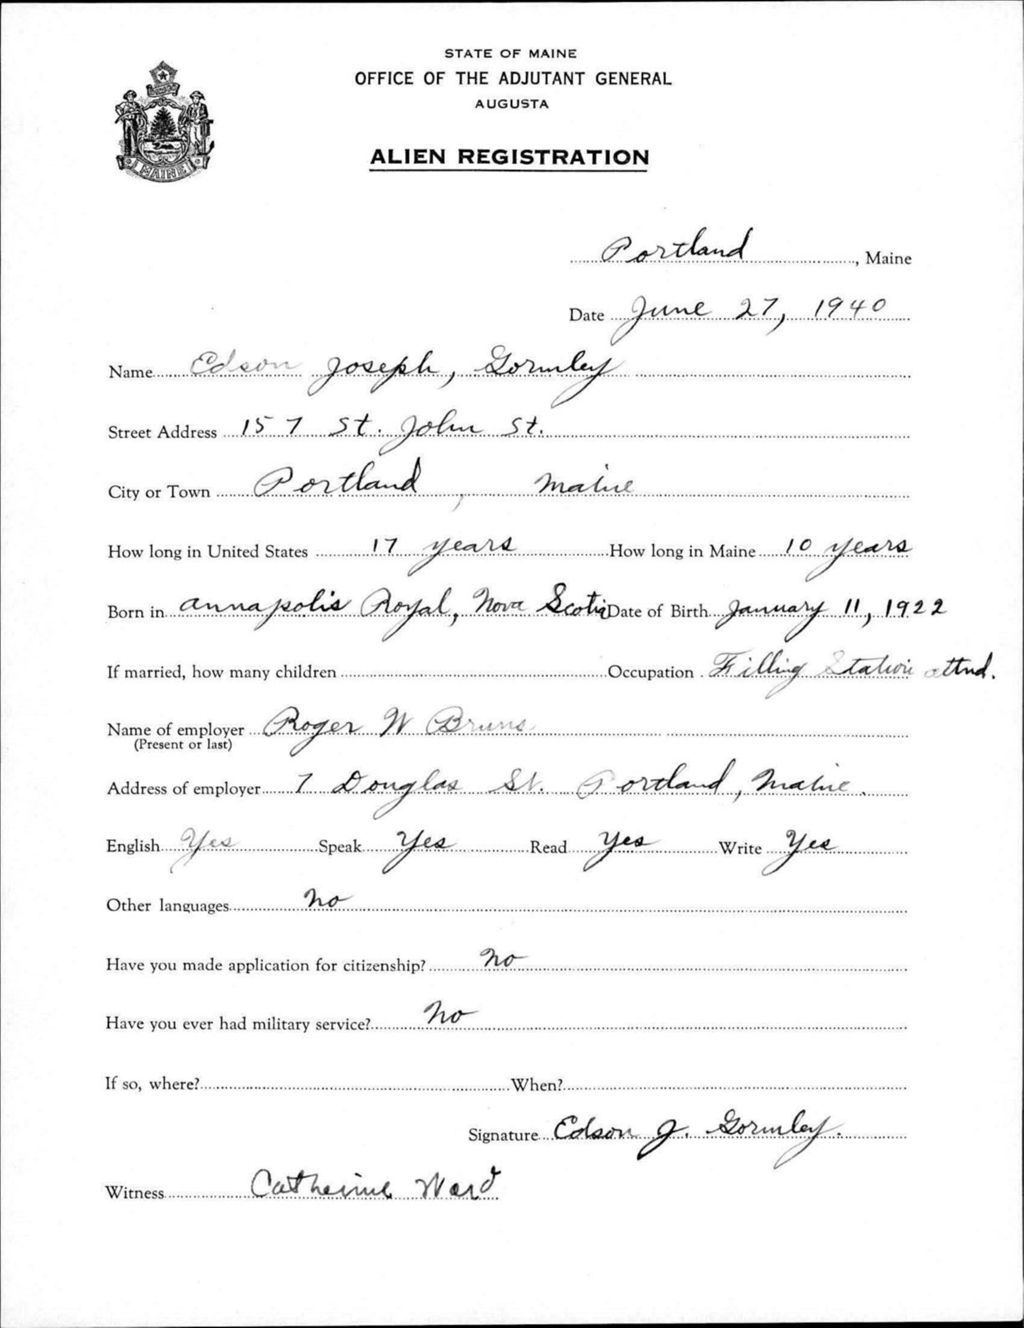 STATE OF MAINE
OFFICE OF THE ADJUTANT GENERAL
AUGUSTA
ALIEN REGISTRATION
MAINE
Portland, Maine
Date June 27, 1940
Name Edson Joseph, Gormley
Street Address 157 St. John St.
City or Town Portland, Maine
How long in United States 17 years How long in Maine 10 years
Born in Annapolis Royal, Nova Scotia Date of Birth January 11, 1922
If married, how many children Occupation Filling Station attnd.
Name of employer Roger W Bruns
(Present or last)
Address of employer 7 Douglas St. Portland, Maine.
English Yes Speak Yes Read Yes Write Yes
Other languages No
Have you made application for citizenship? No
Have you ever had military service? No
If so, where? When?
Signature Edson J. Gormley.
Witness Catherine Ward